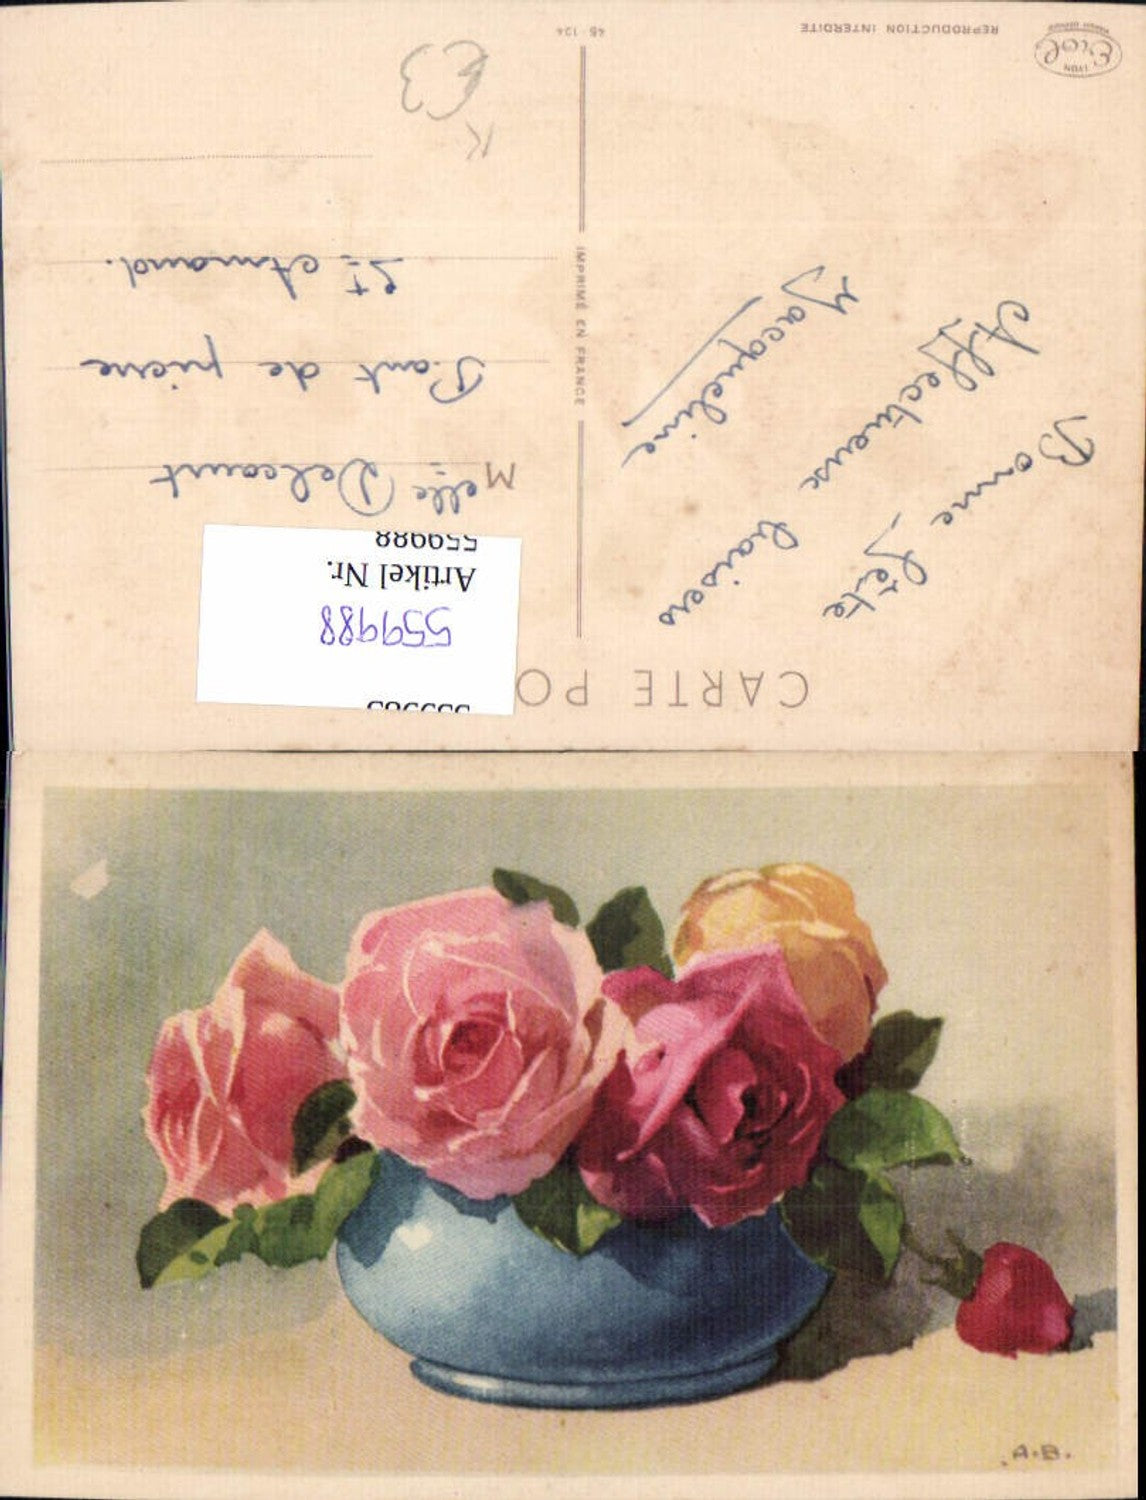 CARTE PO
Bonne fête
Affectueux baisers
Jacqueline
Melle Delcourt
Pont de pierre
St Amand.
IMPRIMÉ EN FRANCE
REPRODUCTION INTERDITE
45-124
LYON
559985
559988
Artikel Nr.
559988
K
€3
A.B.